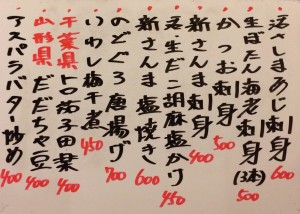 しまあじ刺身 600
生ぼたん海老刺身(3本) 500
かつお刺身 500
新さんま刺身 400
活・生だこ胡麻塩 450
新さんま塩焼き 600
のどぐろ唐揚げ 700
いわし梅干煮 450
千葉県トロ茄子田楽 400
山形県だだちゃ豆 400
アスパラバター炒め 400